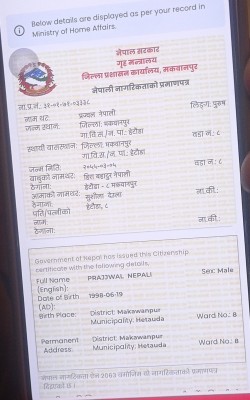 Below details are displayed as per your record in
Ministry of Home Affairs.
नेपाल सरकार
गृह मन्त्रालय
जिल्ला प्रशासन कार्यालय, मकवानपुर
नेपाली नागरिकताको प्रमाणपत्र
लिङ्ग: पुरुष
नाम थर: प्रज्वल नेपाली
जन्म स्थान: जिल्ला: मकवानपुर
गा.वि.स./न. पा.: हेटौंडा वडा नं.: ८
स्थायी वासस्थान: जिल्ला: मकवानपुर
गा.वि.स./न. पा.: हेटौंडा वडा नं.: ८
जन्म मिति:
बाबुको नामथर: बहादुर नेपाली ना.की.:
ठेगाना: हेटौंडा - ८ मकवानपुर
आमाको नामथर: सुशीला ना.की.:
ठेगाना: हेटौंडा, ८
पति/पत्नीको
नाम: ना.की.:
ठेगाना:
Government of Nepal has issued this Citizenship
certificate with the following details.
Full Name PRAJJWAL NEPALI Sex: Male
(English):
Date of Birth 1998-06-19
(AD):
Birth Place: District: Makawanpur
Municipality: Hetauda Ward No.: 8
Permanent District: Makawanpur
Address: Municipality: Hetauda Ward No.: 8